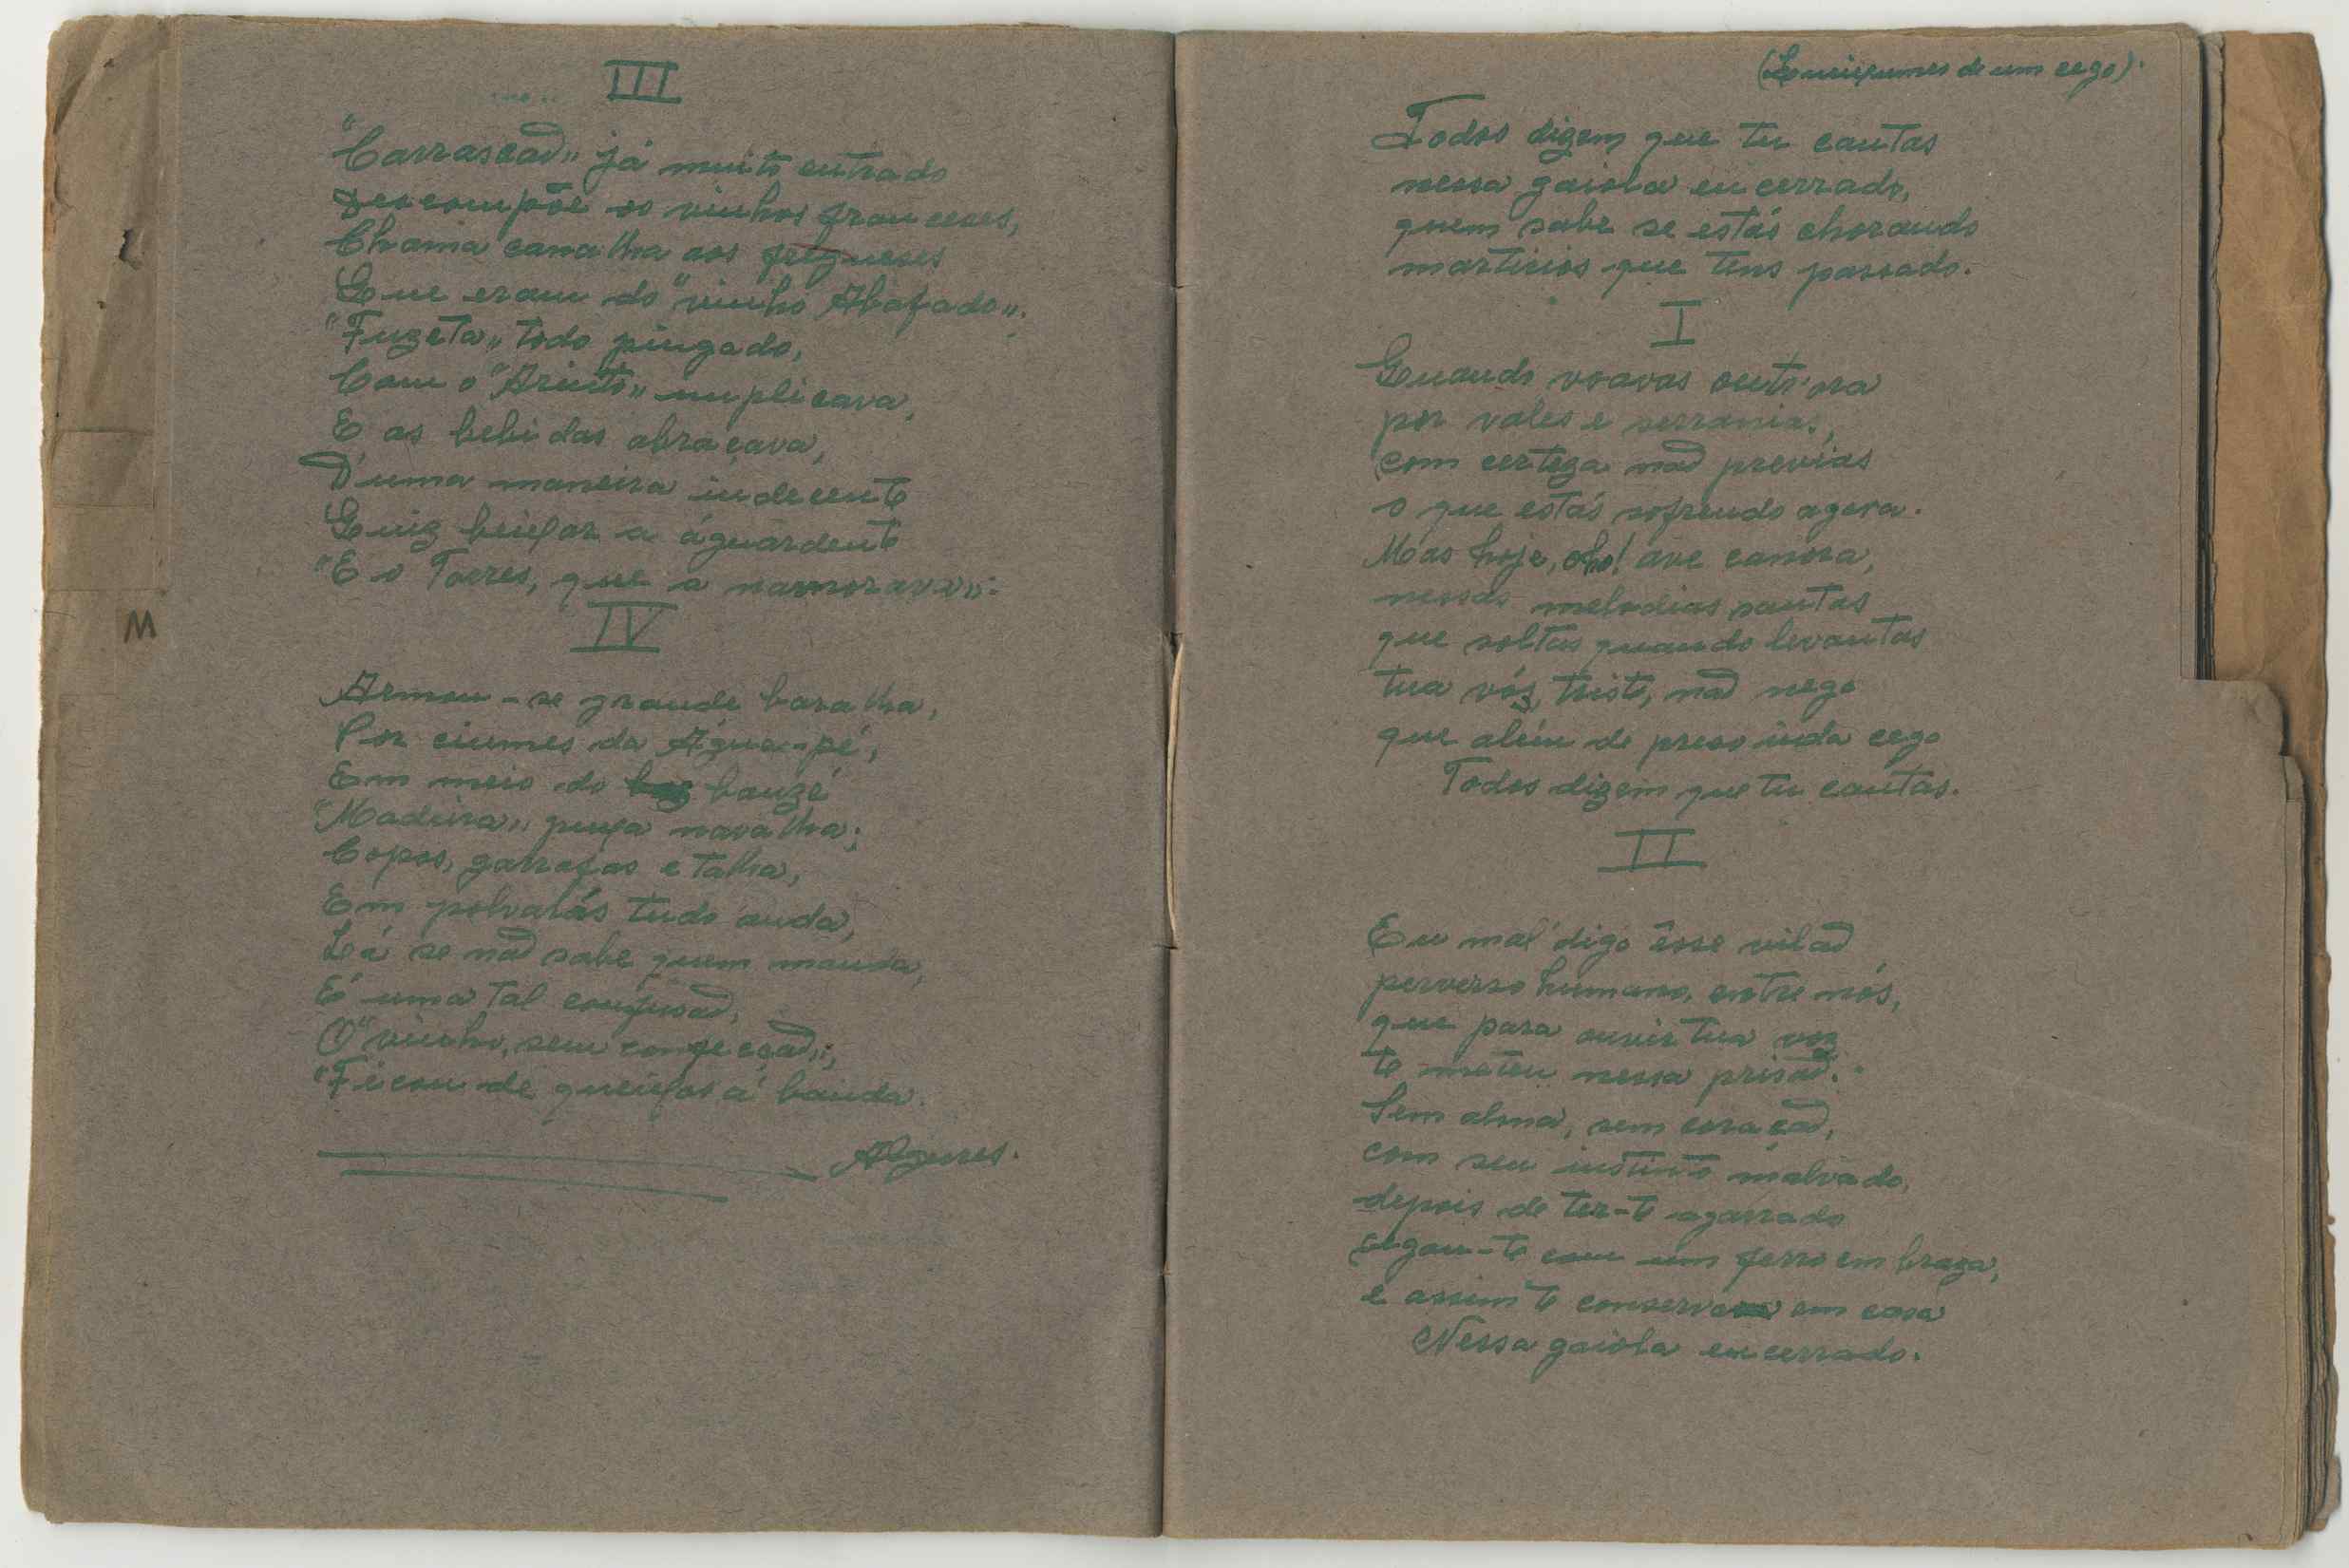 III
"Carrascão„ já muito entrado
Descompõe os vinhos franceses,
Chama canalha aos fregueses
Que eram do "vinho Abafado„.
"Fuzeta„ todo pingado,
Com o "Arinto„ implicava,
E as bebidas abraçava,
D'uma maneira indecente
Quiz beijar a águardente
"E o Torres, que a namorava„.
IV
Armou-se grande baralha,
Por ciumes da Água-pé,
Em meio do banzé
"Madeira„ puxa navalha;
Copos, garrafas e talha,
Em polvorós tudo anda,
Lá se não sabe quem manda,
É uma tal confusão,
O "vinho, sem confeção„;
"Ficou de queixos á banda.
Algures.
M
(Queixumes de um cego).
Todos dizem que tu cantas
nessa gaiola encerrado,
quem sabe se estás chorando
martirios que tens passado.
I
Quando voavas outr'ora
por vales e serranias,
com certeza não previas
o que estás sofrendo agora.
Mas hoje, oho! ave canora,
nessas melodias santas
que soltas quando levantas
tua vós, triste, não nego
que além de preso inda cego
Todos dizem que tu cantas.
II
Eu mal'digo êsse vilão
perverso humano, entre nós,
que para ouvir tua voz
te meteu nessa prisão.
Sem alma, sem coração,
com seu instinto malvado,
depois de ter-te agarrado
cegou-te com um ferro em braza,
e assim te conserva em casa
Nessa gaiola encerrado.